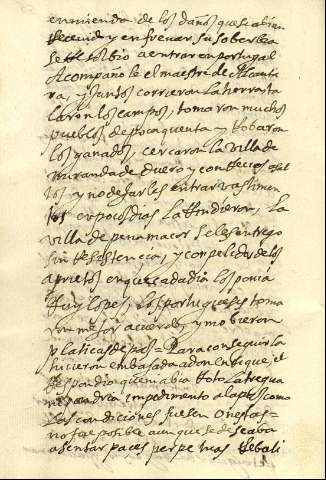 enmienda de los daños que se abian
Recevido y enfrenar su soberbia
se Resolbio a entrar en portugal
Acompañole el maestre de Alcanta
ra, y Juntos corrieron la tierra ta
laron los campos, tomaron muchos
pueblos de poca quenta y Robaron
los ganados, cercaron la Villa de
miranda de duero y con Recios asal
tos y no dejarles entrar bastimen
tos en pocos dias La Rindieron, La
villa de penamacor se les entrego
sin Resistencia, y compelidos de los
aprietos en que cada dia los ponia
Ruy Lopes, los portugueses toma
ron mejor acuerdo, y mobieron
platicas de pas = Para conseguirla
hicieron embajada a don enrique, el
Respondio que no abia Roto La tregua
ni pondria impedimento a la pas como
Las condiciones fuesen onestas =
no fue posible aunque se deseaba
asentar paces perpetuas Resebali